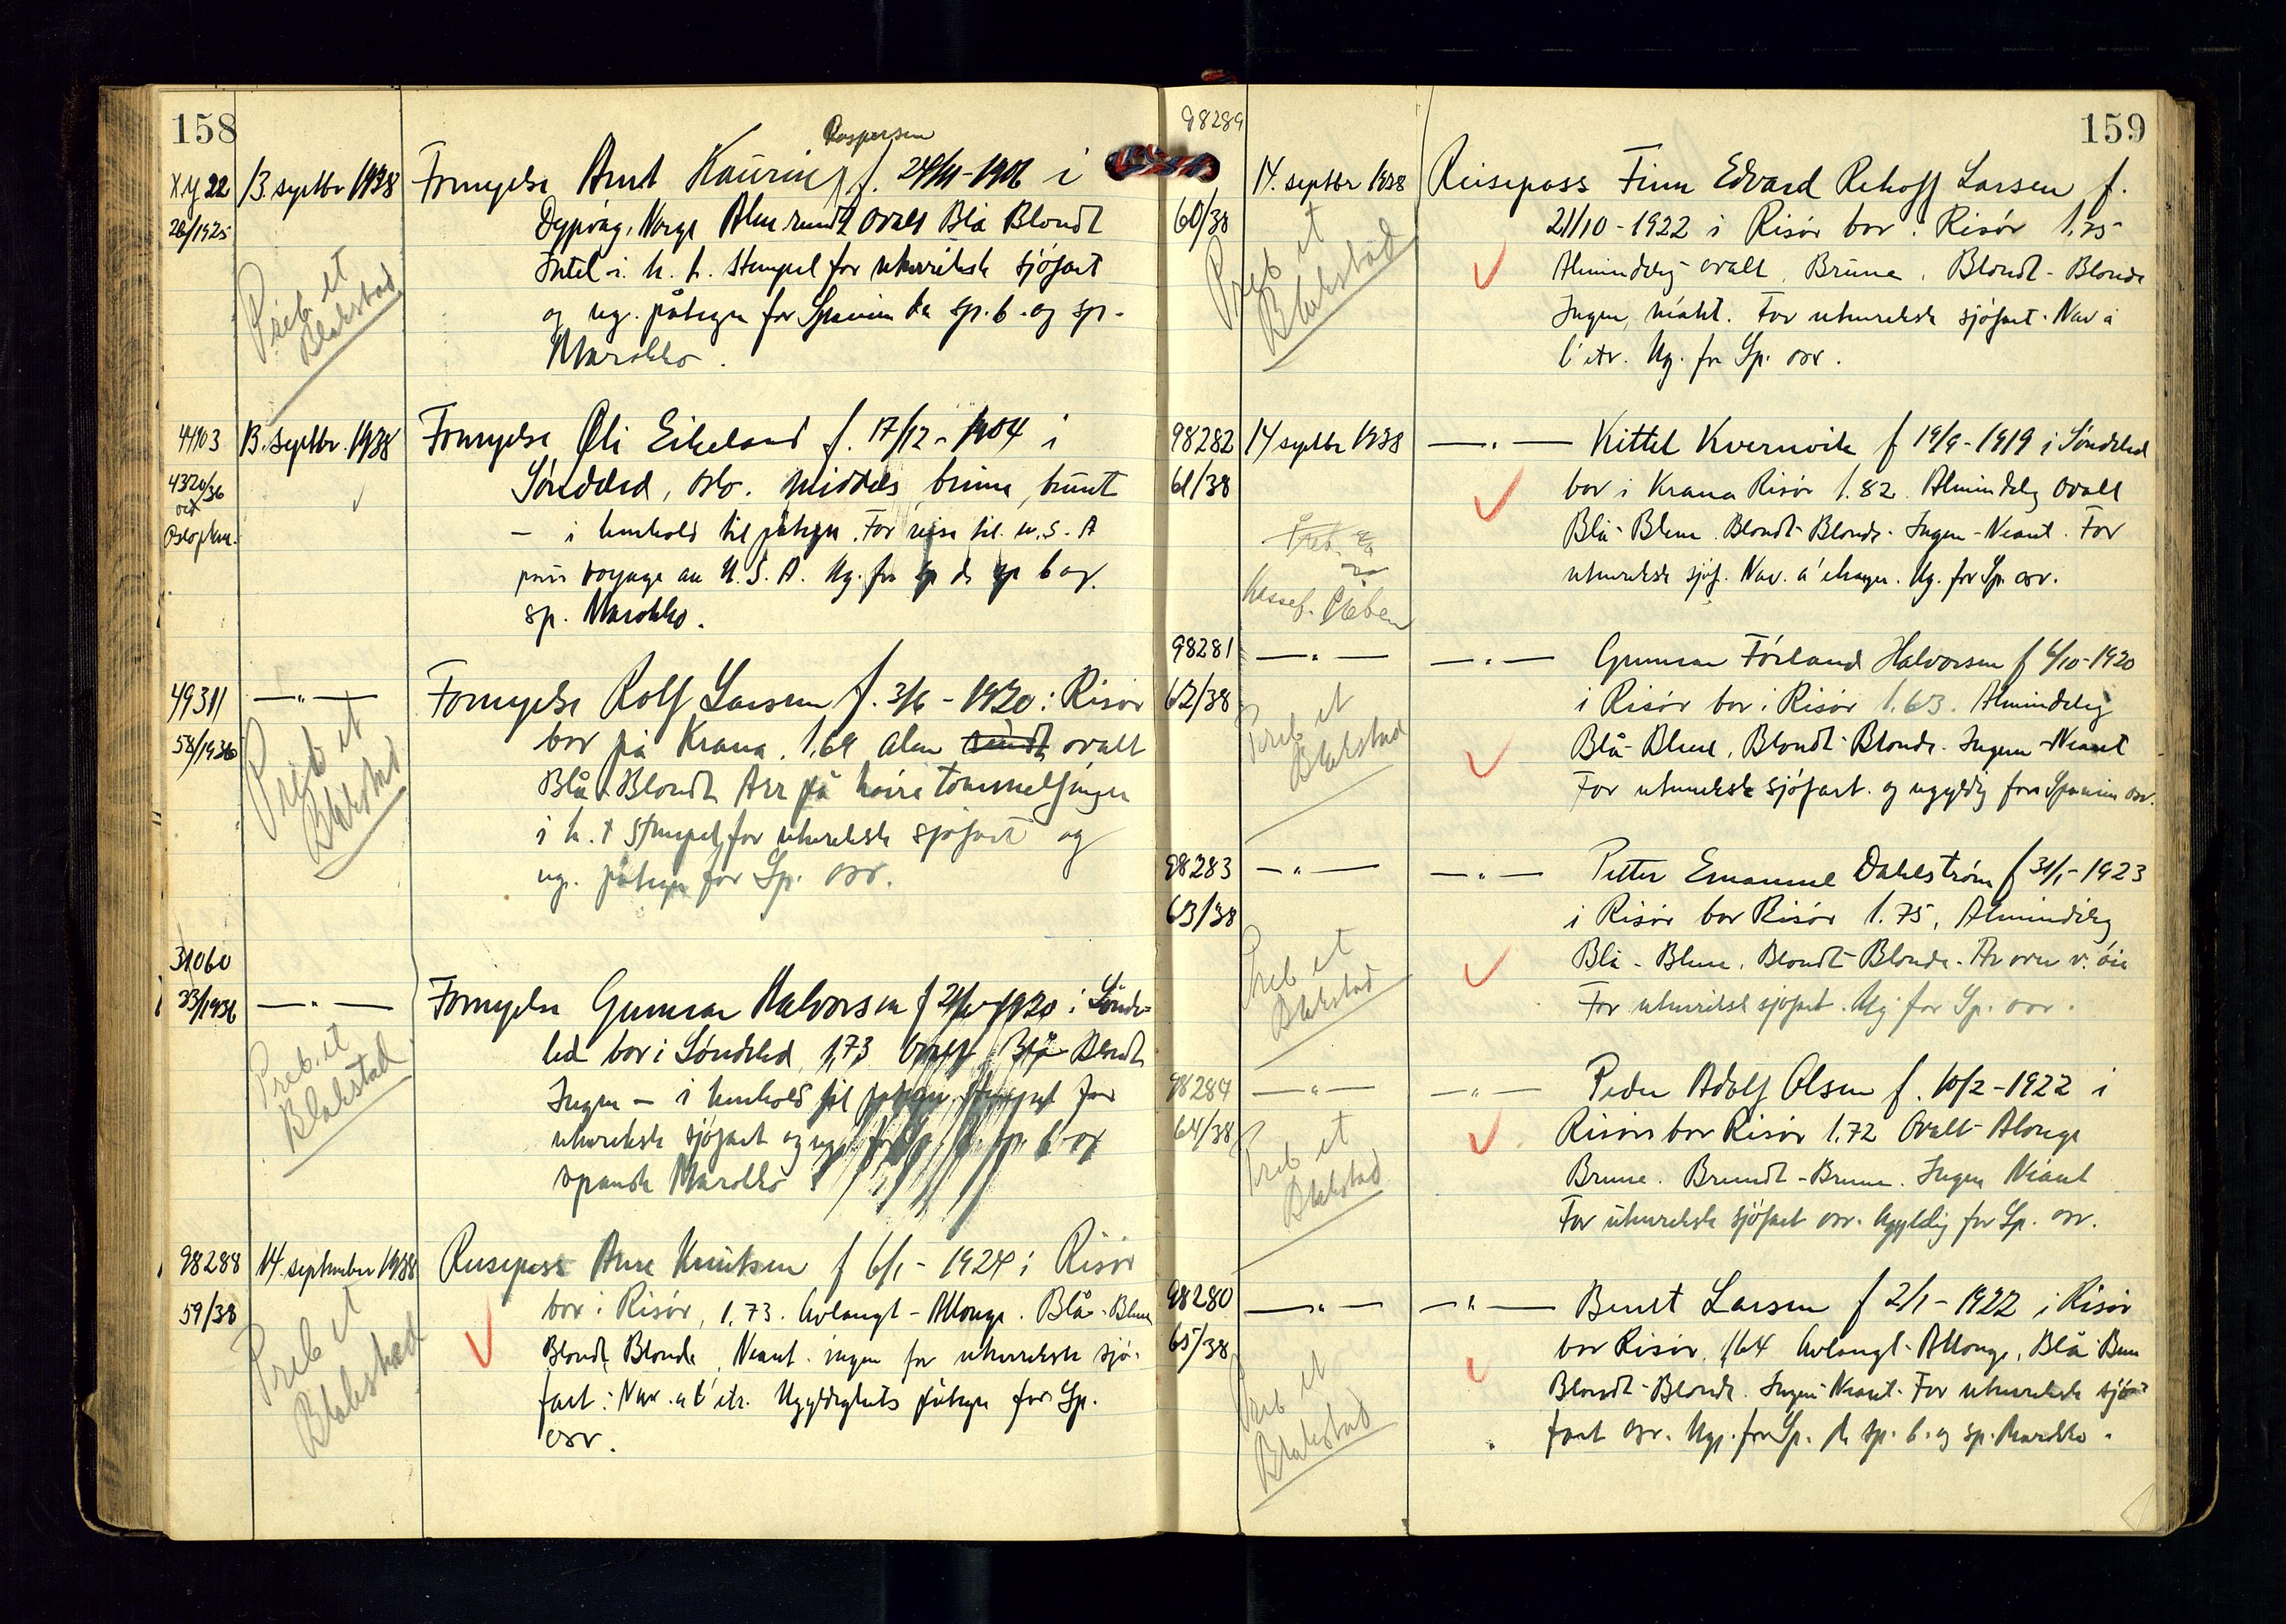 158
Kaspersen
X.Y 22 13. septbr 1938 Fornyelse Arnt Kaurin f. 24/11-1906 i
26/1925 Dypvåg, Norge Alm rundt ovalt Blå Blondt
Intet i. h. t. Stempel for utenriksk sjøfart
og ug. påtegn for Spanien de sp. b. og sp.
Marokko.
Preb. et
Blakstad
44903 13. septbr. 1938 Fornyelse Oli Eikeland f. 17/12-1904 i
4320/36 Søndeled, Oslo. middels, brune, brunt
ved
Oslo pkm. — i henhold til påtegn. For reise til U.S.A
pour voyage au U.S.A. Ug. for sp de sp b og
sp. Marokko.
49311 —"— Fornyelse Rolf Larsen f. 3/6-1920 i Risør
58/1936 bor på Krana. 1,69 Alm rundt ovalt
Blå Blondt Arr på høire tommelfinger
i h. t Stempel for utenriksk sjøfart og
ug. påtegn for Sp. osv.
Preb et
Blakstad
31060
33/1936 —"— Fornyelse Gunnar Halvorsen f 1920 i Sønde-
led bor i Søndeled, 1,73 Ovalt Blå Blondt
Ingen — i henhold til påtegn. Stempel for
utenriksk sjøfart og ug. for Sp. de sp. b og
spansk Marokko
Preb. et
Blakstad
98288 14. september 1938 Reisepass Arne Knutsen f 6/1-1924 i Risør
59/38 bor i Risør, 1.73. Avlangt-Allonge. Blå-Bleue
Blondt Blonde, Neant. ingen for utenriksk sjø-
fart: Nav. a l'etr. Ugyldighets påtegn for Sp.
osv.
Preb et
Blakstad
159
98289
14. septbr 1938 Reisepass Finn Edvard Rehoff Larsen f.
60/38 21/10-1922 i Risør bor i Risør 1.75
Almindelig ovalt, Brune. Blondt-Blonde
Ingen, néant. For utenriksk sjøfart. Nav a
l'etr. Ug. for Sp. osv.
Preb et
Blakstad
98282 14 septbr 1938 —"— Kittel Kvernvik f 19/9-1919 i Søndeled
61/38 bor i Krana Risør 1.82. Almindelig Ovalt
Blå-Bleue. Blondt-Blonde. Ingen-Neant. For
utenriksk sjøf. Nav. a l'etranger. Ug. for Sp. osv.
98281 —"— —"— Gunnar Førland Halvorsen f 6/10-1920
62/38 i Risør bor i Risør 1.63. Almindelig
Blå-Bleue. Blondt-Blonde. Ingen-Neant
For utenriksk sjøfart. og ugyldig for Spanien osv.
Preb et
Blakstad
98283 —"— —"— Petter Emanuel Dahlstrøm f 31/1-1923
63/38 i Risør bor Risør 1.75, Almindelig
Blå-Bleue. Blondt-Blonde. Arr over v. øie
For utenriksk sjøfart. Ug for Sp. osv.
Preb et
Blakstad
98284 —"— —"— Peder Adolf Olsen f. 10/2-1922 i
64/38 Risør bor Risør 1.72 Ovalt-Alonge
Brune. Brundt-Brune. Ingen Néant
For utenriksk sjøfart osv. Ugyldig for Sp. osv.
Preb et
Blakstad
98280 —"— —"— Berut Larsen f 2/1-1922 i Risør
65/38 bor Risør, 1,64 Avlangt-Allonge, Blå Bleue
Blondt-Blonde. Ingen-Neant. For utenriksk sjø-
fart osv. Ug. for Sp. de sp. b. og sp. Marokko.
Preb et
Blakstad